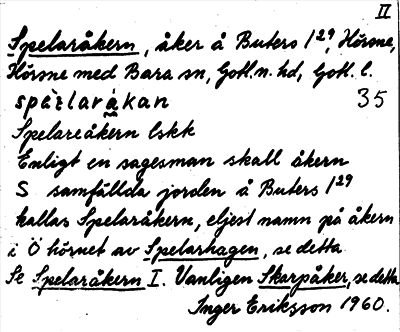 II
Spelaråkern, åker å Buters 1²⁹, Hörsne,
Hörsne med Bara sn, Gotl. n. hd, Gotl. l.
spɛ̀ɛlaråkan 35
Spelareåkern lskk
Enligt en sagesman skall åkern
S samfällda jorden å Buters 1²⁹
kallas Spelaråkern, eljest namn på åkern
i Ö hörnet av Spelarhagen, se detta
Se Spelaråkern I. Vanligen Skarpåker, se detta
Inger Eriksson 1960.